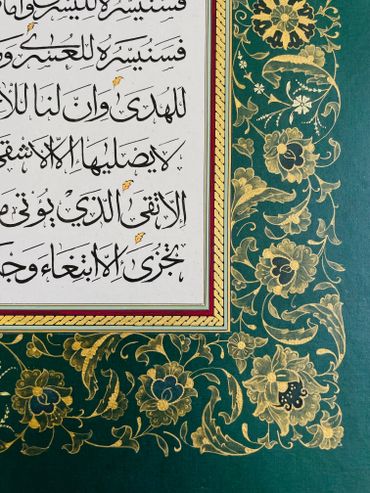 فسنيسره لليسرى واما
فسنيسره للعسرى و
للهدى وان لنا للا
لا يصليها الا الاشقى
الاتقى الذي يؤتى م
تجزى الا ابتغاء وج